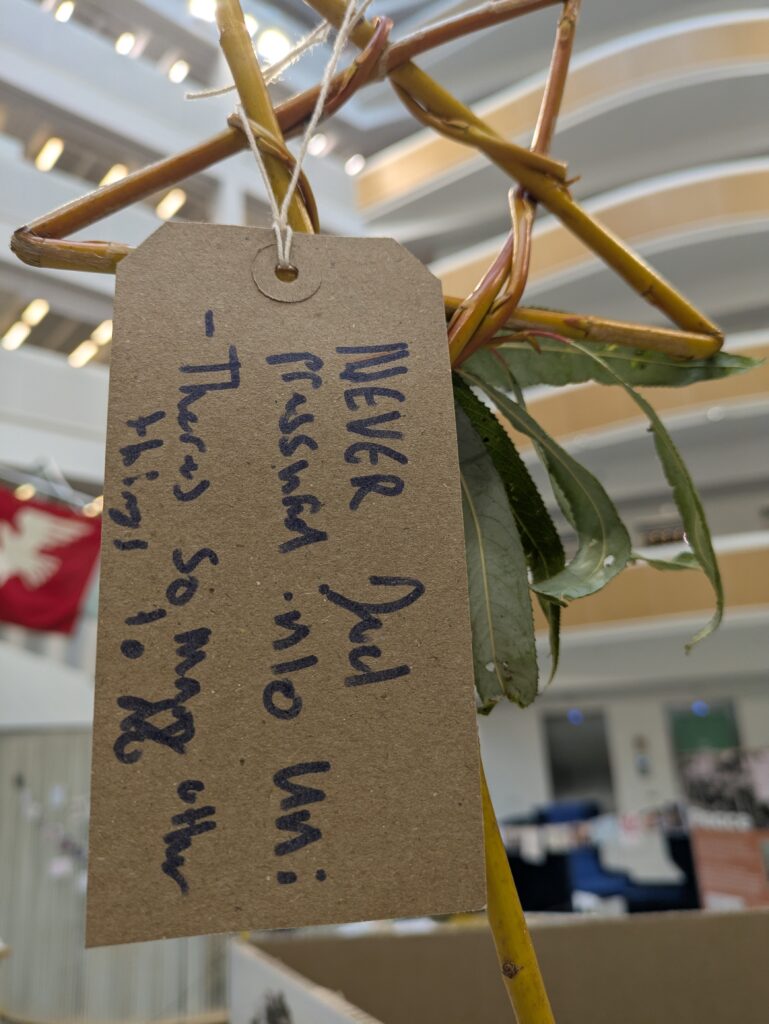 NEVER feel
Pressured into Uni:
- Theres so many other
things